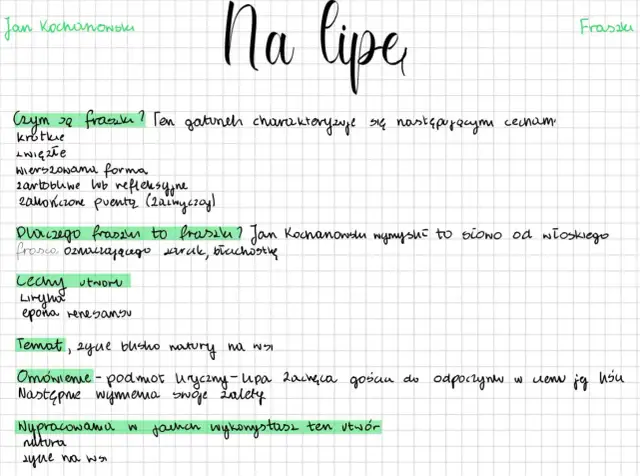 Jan Kochanowski
Na lipę
Fraszki
Czym są fraszki? Ten gatunek charakteryzuje się następującymi cechami
krótkie
zwięzłe
wierszowana forma
żartobliwe lub refleksyjne
zakończone puentą (zazwyczaj)
Dlaczego fraszki to fraszki? Jan Kochanowski wymyślił to słowo od włoskiego
frasca oznaczającego żarcik, błahostkę
Cechy utworu
Liryka
epoka renesansu
Temat, życie blisko natury na wsi
Omówienie - podmiot liryczny - lipa zachęca gościa do odpoczynku w cieniu jej liści
Następnie wymienia swoje zalety
Wypracowania w jakich wykorzystasz ten utwór
natura
życie na wsi